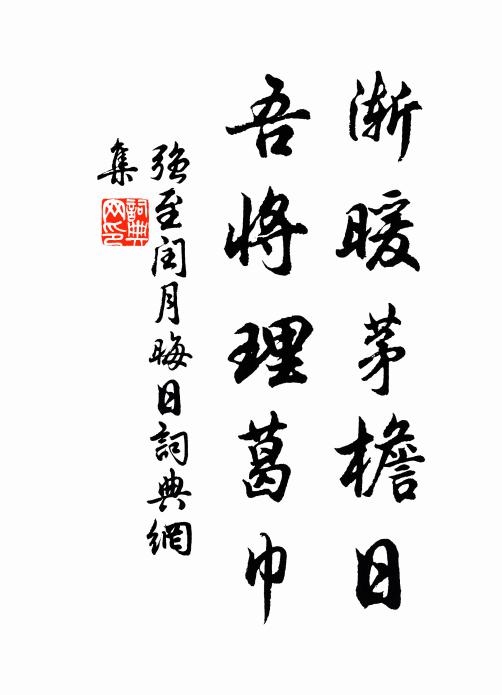 漸暖茅檐日
吾將理葛巾
強至閏月晦日詞典網
集
詞典网印